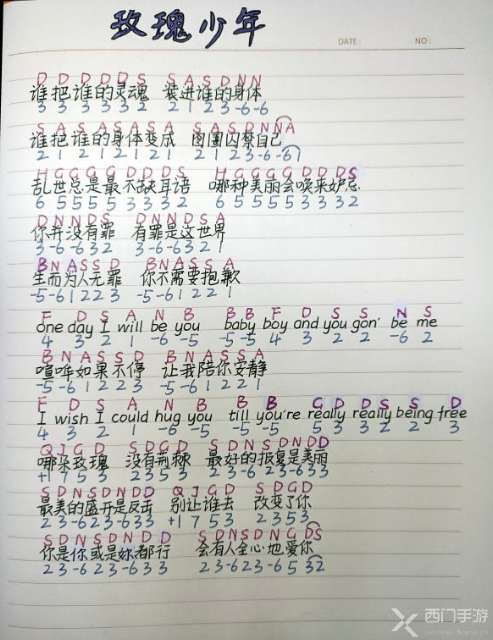 玫瑰少年
DATE: NO:
D D D D D S S A S D N N
谁把谁的灵魂 装进谁的身体
3 3 3 3 3 2 2 1 2 3 -6 -6
S A S A S A S A S A S D N N A
谁把谁的身体变成 囹圄囚禁自己
2 1 2 1 2 1 2 1 2 1 2 3 -6 -6 1
H G G G G D D D S H G G G G G D D D S
乱世总是最不缺耳语 哪种美丽会唤来妒忌
6 5 5 5 5 3 3 3 2 6 5 5 5 5 5 3 3 3 2
D N N D S D N N D S A
你并没有罪 有罪是这世界
3 -6 -6 3 2 3 -6 -6 3 2 1
B N A S S D B N A S S A
生而为人无罪 你不需要抱歉
-5 -6 1 2 2 3 -5 -6 1 2 2 1
F D S A N B B B F D S S N S
one day I will be you baby boy and you gon' be me
4 3 2 1 -6 -5 -5 -5 4 3 2 2 -6 2
B N A S S D B N A S S A
喧哗如果不停 让我陪你安静
-5 -6 1 2 2 3 -5 -6 1 2 2 1
F D S A N B B B G D D S S D
I wish I could hug you till you're really really being free
4 3 2 1 -6 -5 -5 -5 5 3 3 2 2 3
Q J G D S D G D S D N S D N D D
哪朵玫瑰 没有荆棘 最好的报复是美丽
+1 7 5 3 2 3 5 3 2 3 -6 2 3 -6 3 3
S D N S D N D D Q J G D S D G D
最美的盛开是反击 别让谁去 改变了你
2 3 -6 2 3 -6 3 3 +1 7 5 3 2 3 5 3
S D N S D N D D S D N S D N G D S
你是你或是妳都行 会有人全心地爱你
2 3 -6 2 3 -6 3 3 2 3 -6 2 3 -6 5 3 2
西门手游